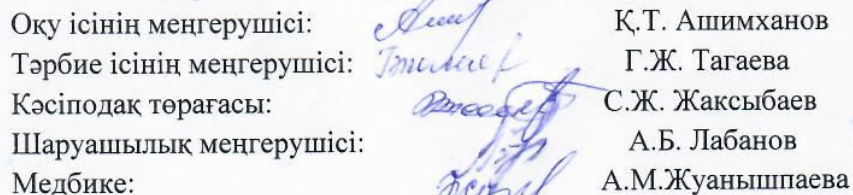 Оқу ісінің меңгерушісі: Қ.Т. Ашимханов
Тәрбие ісінің меңгерушісі: Г.Ж. Тагаева
Кәсіподақ төрағасы: С.Ж. Жаксыбаев
Шаруашылық меңгерушісі: А.Б. Лабанов
Медбике: А.М.Жуанышпаева